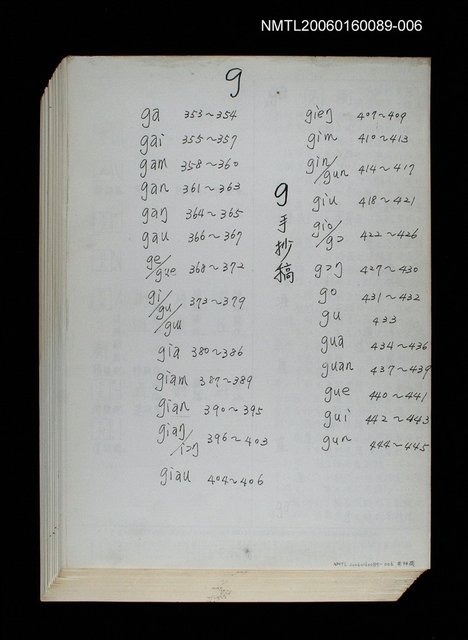 NMTL20060160089-006
g
ga 353~354
gai 355~357
gam 358~360
gan 361~363
gaŋ 364~365
gau 366~367
ge/gue 368~372
gi/gu/gɯ 373~379
gia 380~386
giam 387~389
gian 390~395
giaŋ/iɔŋ 396~403
giau 404~406
g手抄稿
gieŋ 407~409
gim 410~413
gin/gun 414~417
giu 418~421
gio/gɔ 422~426
gɔŋ 427~430
go 431~432
gu 433
gua 434~436
guan 437~439
gue 440~441
gui 442~443
gun 444~445